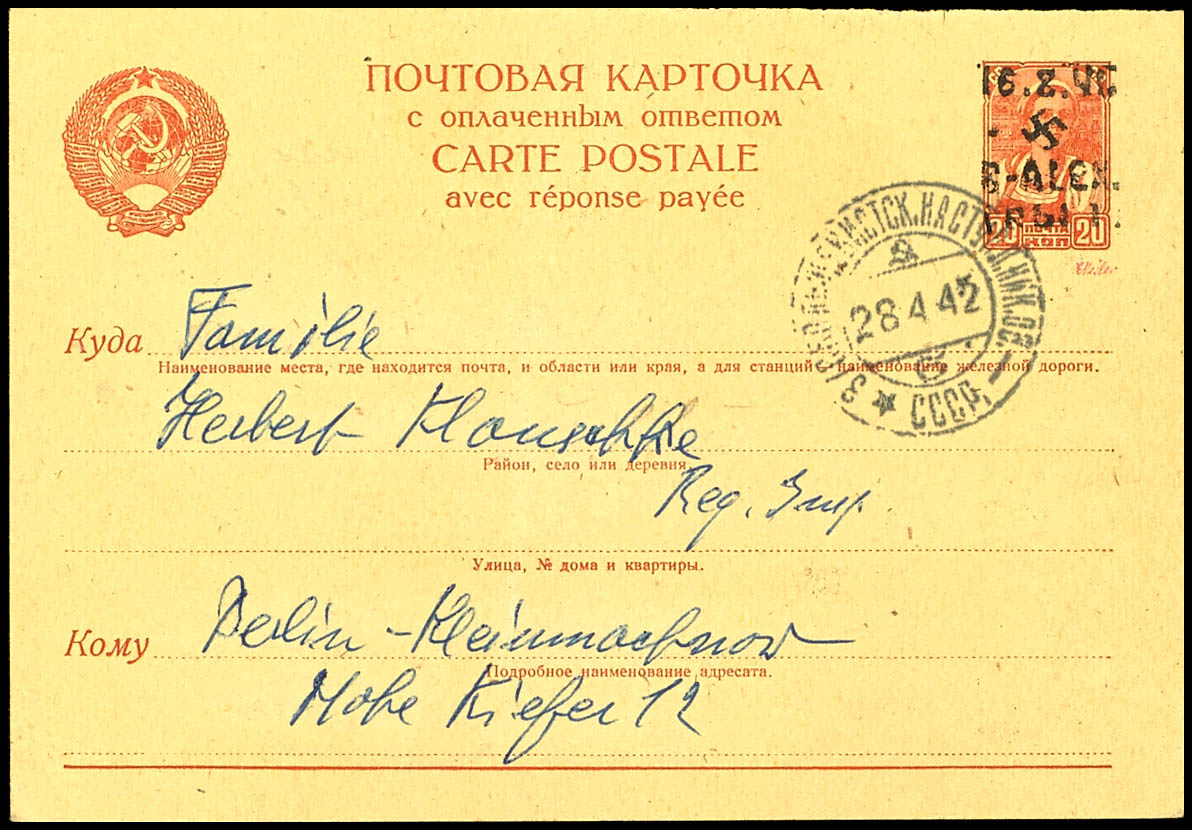 ПОЧТОВАЯ КАРТОЧКА
с оплаченным ответом
CARTE POSTALE
avec réponse payée
-ALEX.
20 ПОЧТА КОП 20
28 4 42
СССР
Куда Familie
Наименование места, где находится почта, и области или края, а для станций наименование железной дороги.
Herbert
Район, село или деревня
Reg. Insp.
Улица, № дома и квартиры.
Кому Berlin-Kleinmachnow
Подробное наименование адресата.
Hohe Kiefer 12